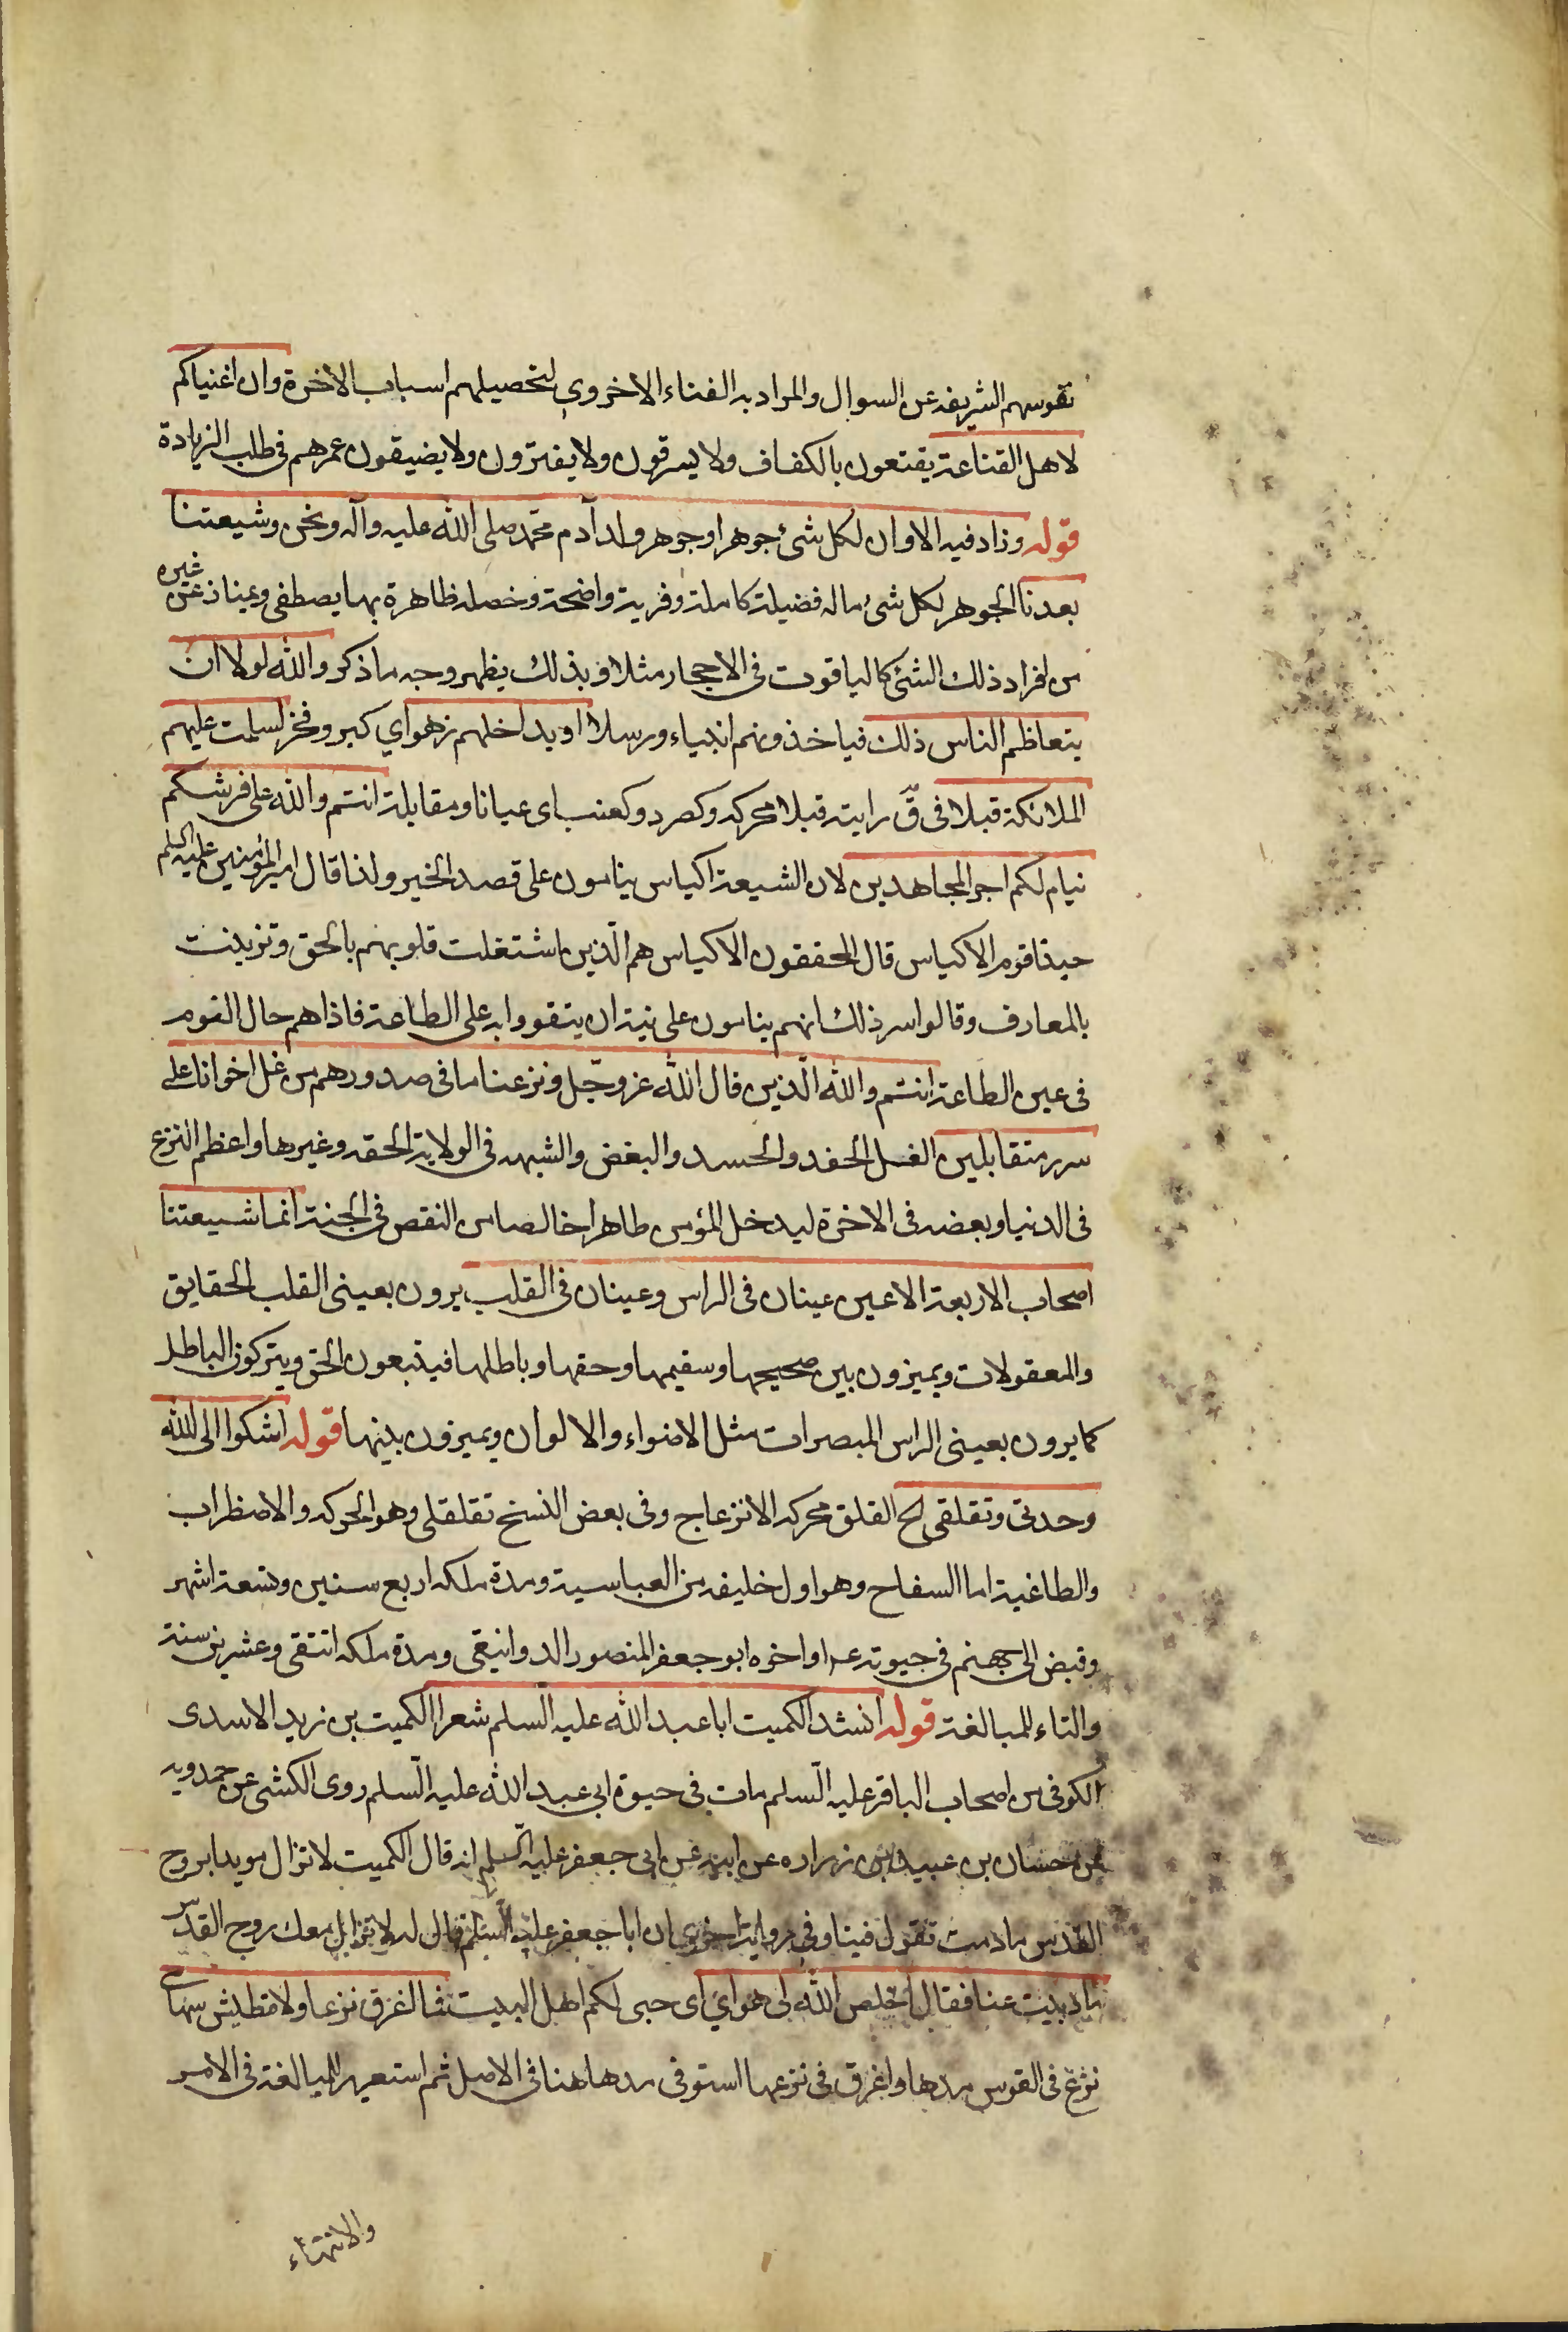 نفوسهم الشريفه عن السوال والمراد به الغناء الاخروي لتحصيلهم اسباب الاخرة وان اغنياكم
لاهل القناعة يقنعون بالكفاف ولا يسرفون ولا يفترون ولا يضيقون عمرهم في طلب الزيادة
قوله وزاد فيه الا وان لكل شئ جوهرا وجوهر ولد آدم محمد صلى الله عليه وآله ونحن وشيعتنا
بعدنا الجوهر لكل شئ ماله فضيلة كاملة ومزية واضحة وخصله ظاهرة بها يصطفى ويمتاز عن غيره
من افراد ذلك الشئ كالياقوت في الاحجار مثلا وبذلك يظهر وجه ما ذكر والله لولا ان
يتعاظم الناس ذلك فياخذونهم انبياء ورسلا او يداخلهم زهو اي كبر وفخر لسلمت عليهم
الملائكة قبلا في ق رايته قبلا محركه وكصرد وكعنب اى عيانا ومقابلة انتم والله على فرشكم
نيام لكم اجر المجاهدين لان الشيعة اكياس ينامون على قصد الخير ولذا قال امير المؤمنين عليه السلم
حبذا نوم الاكياس قال المحققون الاكياس هم الّذين اشتغلت قلوبهم بالحق وتزينت
بالمعارف وقالوا سر ذلك انهم ينامون على نية ان يتقووا به على الطاعة فاذا هم حال النوم
في عين الطاعة انتم والله الّذين قال الله عز وجّل ونزعنا ما في صدورهم من غل اخوانا على
سرر متقابلين الغل الحقد والحسد والبغض والشبهه في الولاية الحقه وغيرها واعظم النزع
في الدنيا وبعضه في الاخرة ليدخل المؤمن طاهرا خالصا من النقص في الجنة انما شيعتنا
اصحاب الاربعة الاعين عينان في الراس وعينان في القلب يرون بعيني القلب الحقايق
والمعقولات ويميزون بين صحيحها وسقيمها وحقها وباطلها فيتبعون الحق ويتركون الباطل
كما يرون بعيني الراس المبصرات مثل الاضواء والالوان ويميزون بينها قوله اشكوا الى الله
وحدتى وتقلقى الخ القلق محركه الانزعاج وفي بعض النسخ تقلقلى وهو الحركه والاضطراب
والطاغية اما السفاح وهو اول خليفه من العباسية ومدة ملكه اربع سنين وتسعة اشهر
وقبض الى جهنم في حيوته ع او اخوه ابو جعفر المنصور الدوانيقى ومدة ملكه اثنتى وعشرين سنة
والتاء للمبالغة قوله انشد الكميت ابا عبد الله عليه السّلم شعرا الكميت بن زيد الاسدى
الكوفى من اصحاب الباقر عليه السّلم مات في حيوة ابى عبد الله عليه السّلم روى الكشى عن حمدويه
عن حسان بن عبيد بن زراره عن ابيه عن ابى جعفر عليه السلم انه قال الكميت لا تزال مويدا بروح
القدس ما دمت تقول فينا وفي رواية اخرى ان ابا جعفر عليه السلم قال له لا تزال معك روح القدس
ما ذببت عنا فقال اخلص الله لى هواي اى حبى لكم اهل البيت فما اغرق نزعا ولا تطيش سهامى
نزع في القوس مدها واغرق في نزعها استوفى مدها هذا في الاصل ثم استعير للمبالغة في الامر
والانتهاء